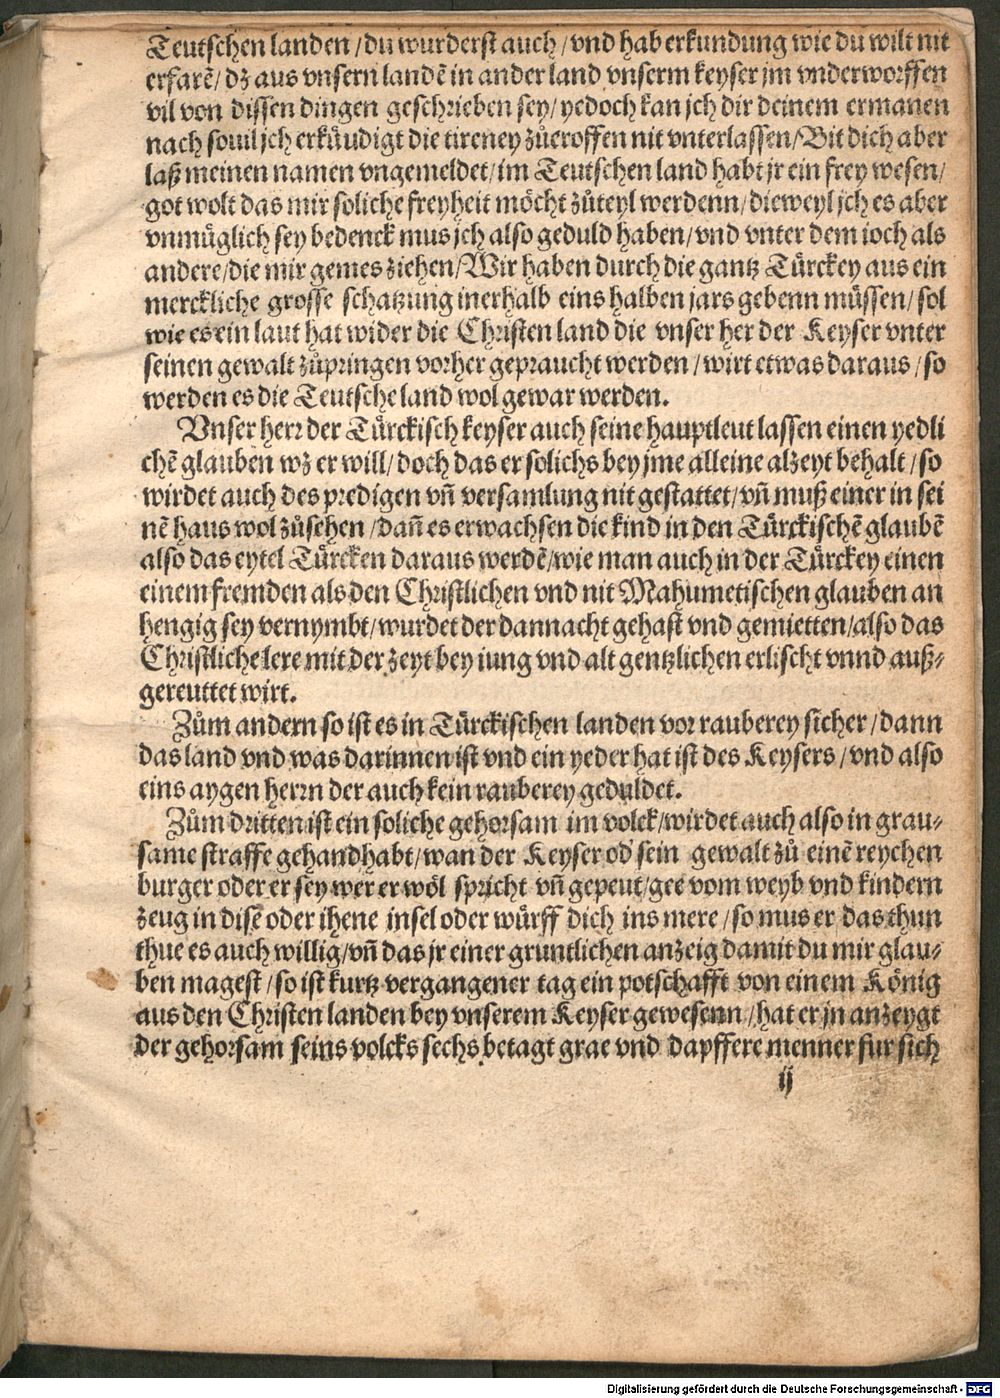 Teutschen landen / du wurderst auch / vnd hab erkundung wie du wilt nit
erfarē / dz aus vnsern landē in ander land vnserm keyser jm vnderworffen
vil von dissen dingen geschrieben sey / yedoch kan jch dir deinem ermanen
nach souil jch erkündigt die tireney zůeroffen nit vnterlassen / Bit dich aber
laß meinen namen vngemeldet / im Teutschen land habt jr ein frey wesen /
got wolt das mir soliche freyheit möcht zůteyl werdenn / dieweyl jch es aber
vnmüglich sey bedenck mus jch also geduld haben / vnd vnter dem ioch als
andere / die mir gemes ziehen / Wir haben durch die gantz Türckey aus ein
merckliche grosse schatzung inerhalb eins halben jars gebenn müssen / sol
wie es ein laut hat wider die Christen land die vnser her der Keyser vnter
seinen gewalt zůpringen vorher gepraucht werden / wirt etwas daraus / so
werden es die Teutsche land wol gewar werden.
Vnser herr der Türckisch keyser auch seine hauptleut lassen einen yedli
chē glauben wz er will / doch das er solichs bey jme alleine alzeyt behalt / so
wirdet auch des predigen vn̄ versamlung nit gestattet / vn̄ muß einer in sei
nē haus wol zůsehen / dan̄ es erwachsen die kind in den Türckischē glaubē
also das eytel Türcken daraus werdē / wie man auch in der Türckey einen
einem fremden als den Christlichen vnd nit Mahumetischen glauben an
hengig sey vernymbt / wurdet der dannacht gehast vnd gemietten / also das
Christliche lere mit der zeyt bey iung vnd alt gentzlichen erlischt vnnd auß⸗
gereuttet wirt.
Zům andern so ist es in Türckischen landen vor rauberey sicher / dann
das land vnd was darinnen ist vnd ein yeder hat ist des Keysers / vnd also
eins aygen herrn der auch kein rauberey geduldet.
Zům dritten ist ein soliche gehorsam im volck / wirdet auch also in grau⸗
same straffe gehandhabt / wan der Keyser od' sein gewalt zů einē reychen
burger oder er sey wer er wöl spricht vn̄ gepeut / gee vom weyb vnd kindern
zeug in disē oder ihene insel oder würff dich ins mere / so mus er das thun
thue es auch willig / vn̄ das jr einer gruntlichen anzeig damit du mir glau⸗
ben magest / so ist kurtz vergangener tag ein potschafft von einem König
aus den Christen landen bey vnserem Keyser gewesenn / hat er jn anzeygt
der gehorsam seins volcks sechs betagt grae vnd dapffere menner fur sich
ij
Digitalisierung gefördert durch die Deutsche Forschungsgemeinschaft - DFG